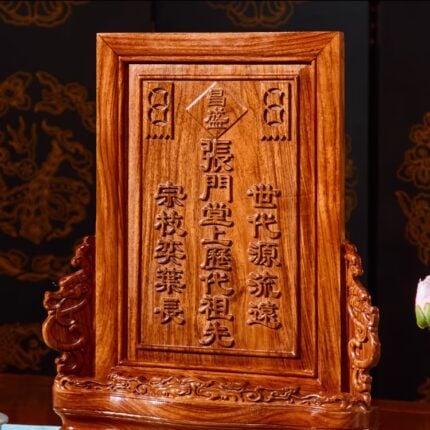 昌盛
世代源流遠
張門堂上歷代祖先
宗枝奕葉長